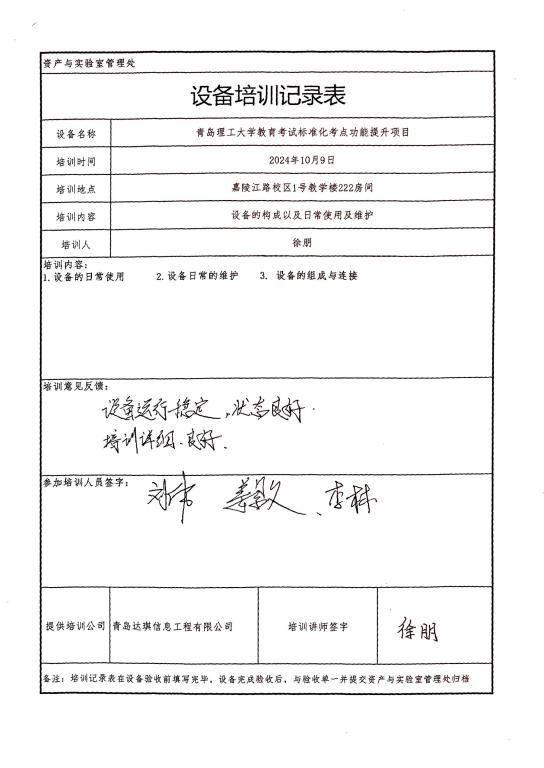 资产与实验室管理处
设备培训记录表
设备名称 青岛理工大学教育考试标准化考点功能提升项目
培训时间 2024年10月9日
培训地点 嘉陵江路校区1号教学楼222房间
培训内容 设备的构成以及日常使用及维护
培训人 徐朋
培训内容:
1.设备的日常使用 2.设备日常的维护 3. 设备的组成与连接
培训意见反馈:
设备运行稳定,状态良好.
培训详细.良好.
参加培训人员签字:
刘伟 、李林
提供培训公司 青岛达琪信息工程有限公司 培训讲师签字 徐朋
备注:培训记录表在设备验收前填写完毕,设备完成验收后,与验收单一并提交资产与实验室管理处归档